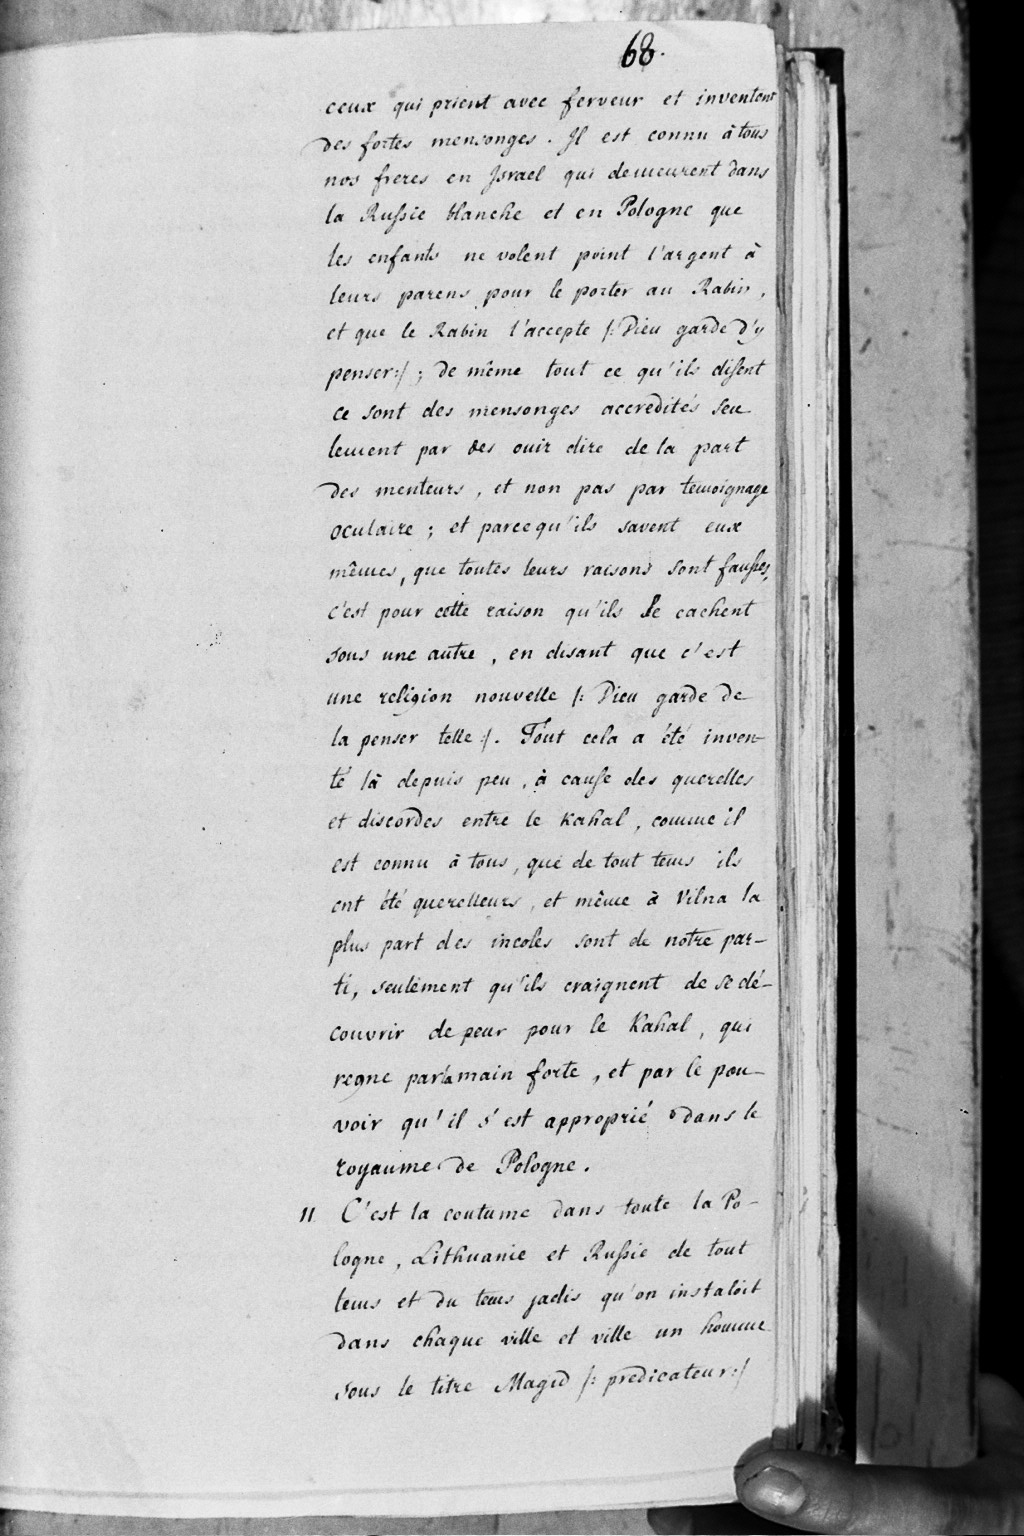 68.
ceux qui prient avec ferveur et inventent
des fortes mensonges. Il est connu à tous
nos freres en Israel qui demeurent dans
la Russie blanche et en Pologne que
les enfants ne volent point l'argent à
leurs parens pour le porter au Rabin,
et que le Rabin l'accepte /: Dieu garde d'y
penser:/ ; de même tout ce qu'ils disent
ce sont des mensonges accredités seu
lement par des ouir dire de la part
des menteurs, et non pas par temoignage
oculaire ; et parcequ'ils savent eux
mêmes, que toutes leurs raisons sont fausses,
c'est pour cette raison qu'ils se cachent
sous une autre, en disant que c'est
une religion nouvelle /: Dieu garde de
la penser telle :/. Tout cela a été inven-
té là depuis peu, à cause des querelles
et discordes entre le Kahal, comme il
est connu à tous, que de tout tems ils
ont été querelleurs, et même à Vilna la
plus part des incoles sont de notre par-
ti, seulement qu'ils craignent de se dé-
couvrir de peur pour le Kahal, qui
regne par la main forte, et par le pou-
voir qu'il s'est approprié dans le
royaume de Pologne.
11. C'est la coutume dans toute la Po-
logne, Lithuanie et Russie de tout
tems et du tems jadis qu'on instaloit
dans chaque ville et ville un homme
sous le titre Magid /: predicateur:/